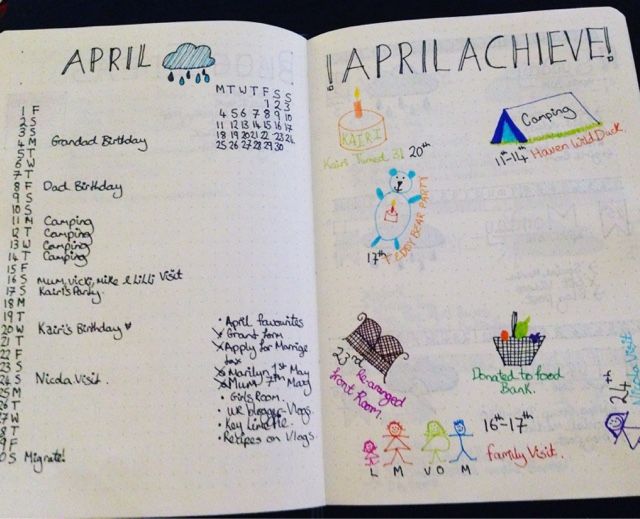 APRIL
M T W T F S S
1 2 3
4 5 6 7 8 9 10
11 12 13 14 15 16 17
18 19 20 21 22 23 24
25 26 27 28 29 30
1 F
2 S
3 S
4 M Grandad Birthday
5 T
6 W
7 T
8 F Dad Birthday
9 S
10 S
11 M Camping
12 T Camping
13 W Camping
14 T Camping
15 F
16 S Mum, Vicki, Mike & Lilli Visit
17 S Kairi's Party
18 M
19 T
20 W Kairi's Birthday ♥
21 T
22 F
23 S
24 S Nicola Visit.
25 M
6 T
7 W
8 T
9 F
0 S Migrate!
• April favourites
X Grant form
X Apply for Marrige
tax
X Marilyn 1st May
X Mum 7th May
• Girls Room.
• blogger Vlogs.
• Key
• Recipes on Vlogs.
!APRIL ACHIEVE!
KAIRI
Kairi Turned 3! 20th
Camping
11-14th Haven Wild Duck.
17th TEDDY BEAR PARTY
23rd Re-arranged
front Room.
Donated to food
Bank.
24th Nicola Visit
L M V O M
16th-17th
family Visit.